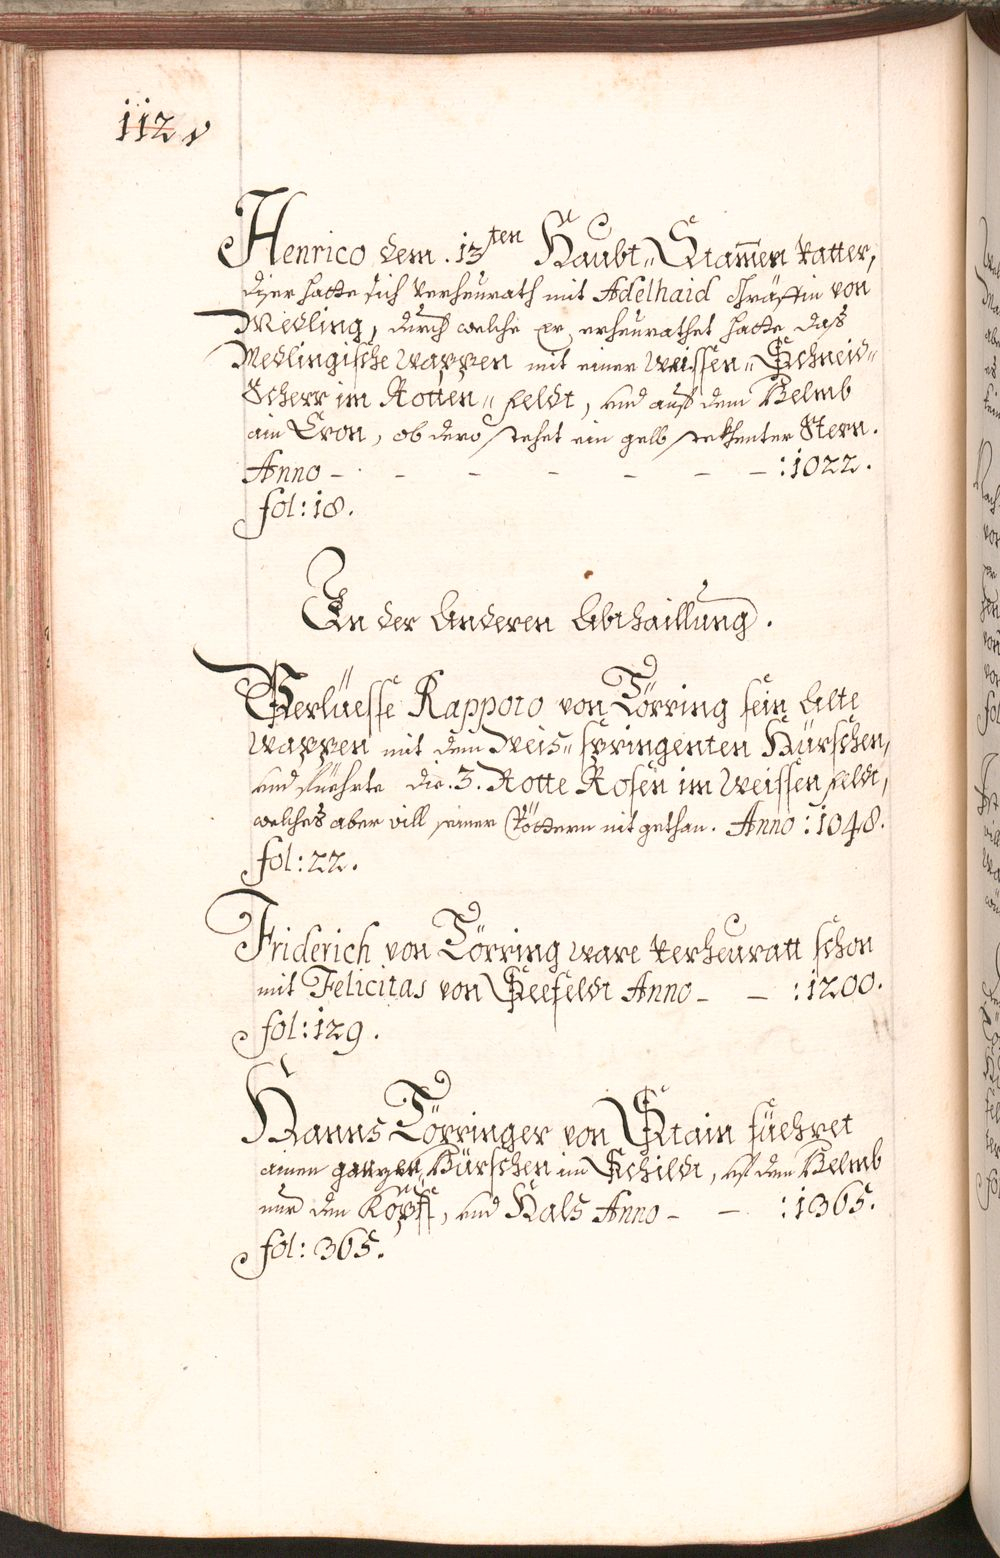 112 v
Henrico dem .13ten Haubt„ Stam̄en Vatter,
diser hatte sich verheurath mit Adelhaid Gräffin von
Medling, durch welche er erheurathet hatte daß
Medlingische Wappen mit einer Weissen„ Schneid„
Scherr im Rotten„ Feldt, und auf dem Helmb
ain Cron, ob dero stehet ein gelb Stern.
Anno – – – – – – – :1022.
fol: 18.
In der Anderen Abthaillung.
Verlüesse Rappoto von Törring sein Alte
Wappen mit dem Weis„ springenten Hürschen,
und füehrte die .3. Rotte Rosen im Weissen Feldt,
welches aber vill seiner Vöttern nit gethan. Anno : 1048.
fol: 22.
Friderich von Törring ware verheuratt schon
mit Felicitas von Seefeldt Anno – – : 1200.
fol: 129.
Hanns Törringer von Stain füehret
ainen ganzen Hürschen im Schildt, uf dem Helmb
nur den Kopff, und Hals Anno – – : 1365.
fol: 365.